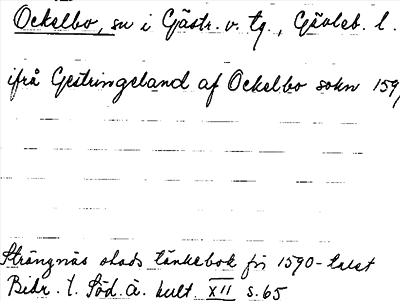 Ockelbo, sn i Gästr. v. tg., Gävleb. l.
ifrå Gestringeland af Ockelbo sokn 159
Strängnäs stads tänkebok för 1590-talet
Bidr. t. Söd. ä. kult XII s. 65